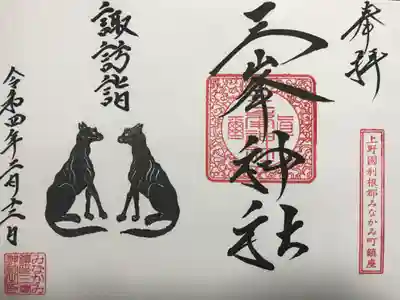 奉拝
上野國利根郡みなかみ町鎮座
三峯神社
諏訪詣
令和四年二月十二日